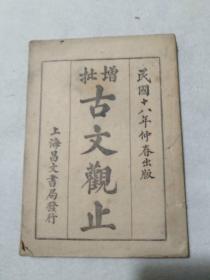 民國十八年仲春出版
增批
古文觀止
上海昌文書局發行